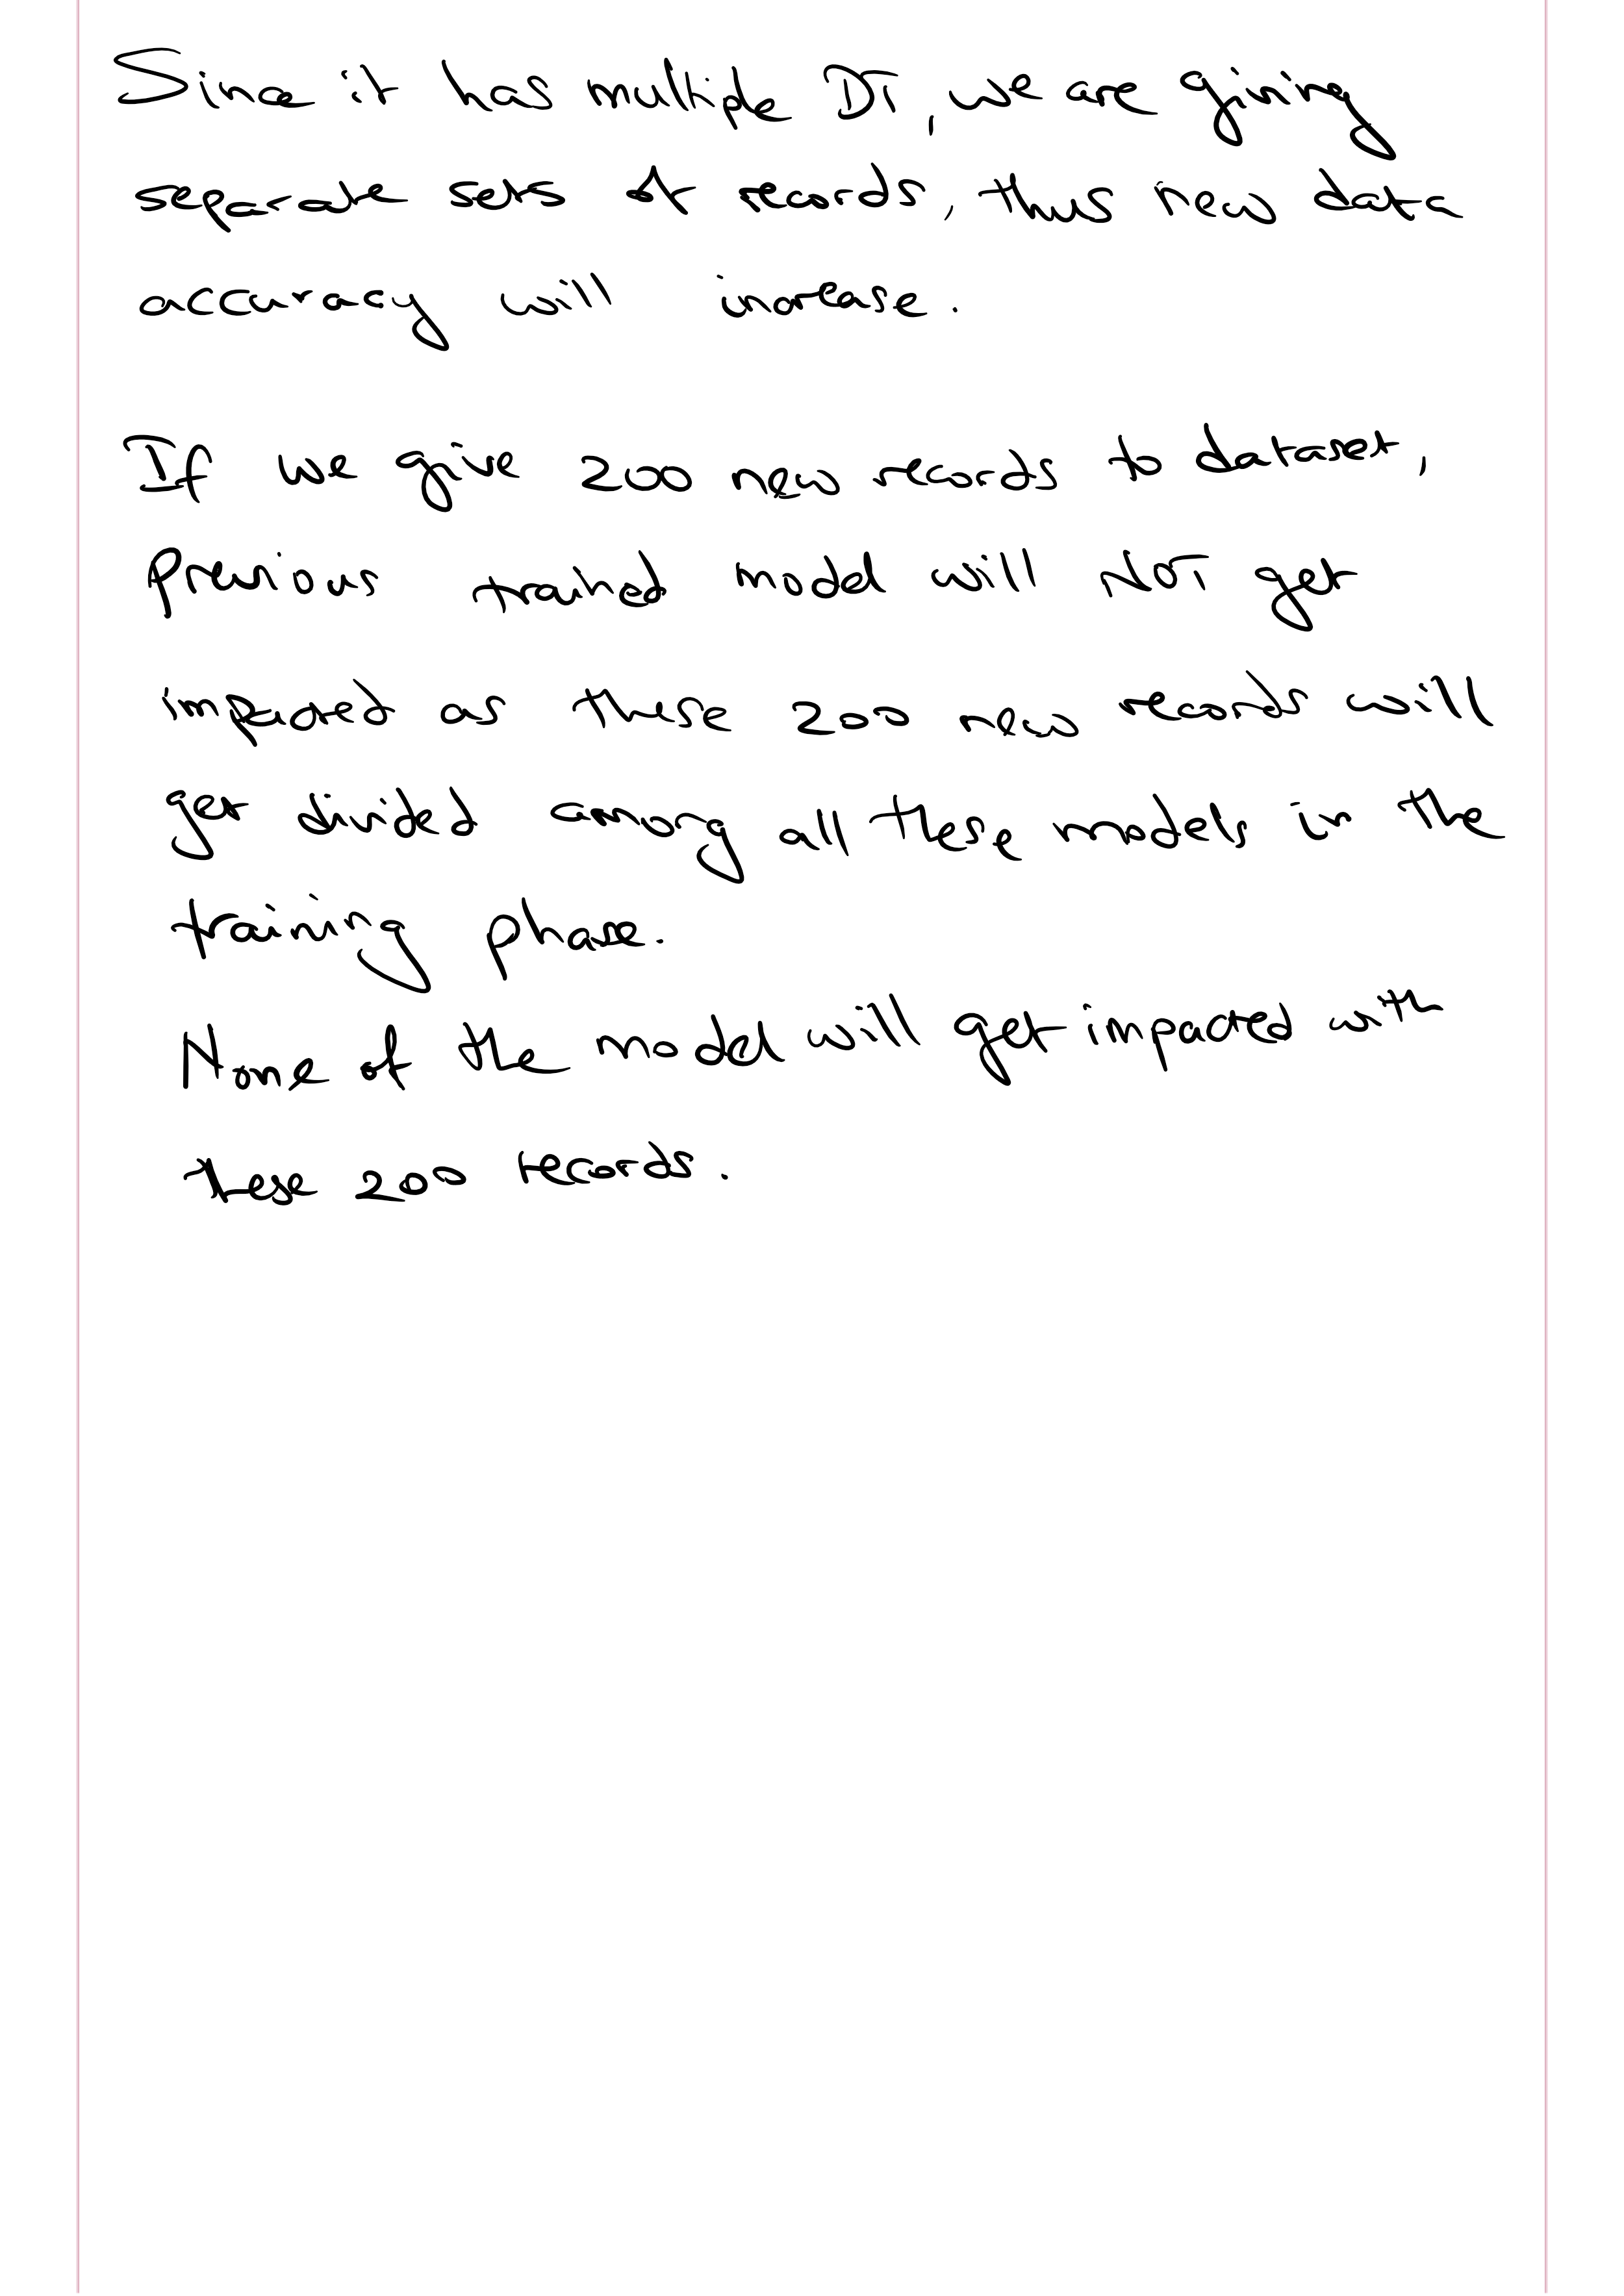 Since it has multiple DT, we are giving
separate sets of records, thus new data
accuracy will increase.
If we give 200 new records to dataset,
Previous trained model will NOT get
impacted as these 200 new records will
get divided among all these models in the
training phase.
None of the model will get impacted with
these 200 records.